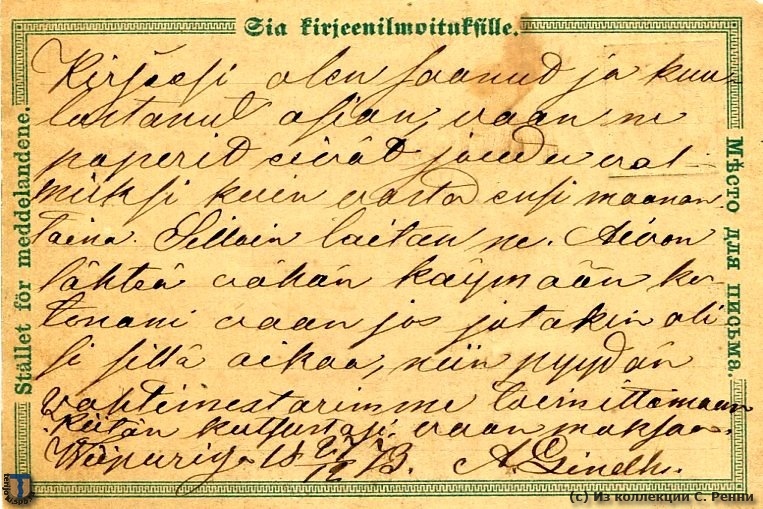 Sia kirjeenilmoituksille.
Stället för meddelandene.
Мѣсто для письма.
Kirjeesi olen saanut ja kuu-
lustanut asian, vaan ne
paperid eivät joudu val-
miiksi kuin vasta ensi maanan-
taina. Silloin laitan ne. Aivon
lähteä vähän käymään ko-
tonani vaan jos jotakin oli-
si sillä aikaa, niin pyydän
vahtimestarimme toimittamaan
Kiitän kutsustasi vaan
Wiipuri 18 27/12 73. A. Lindh.
(c) Из коллекции С. Ренни